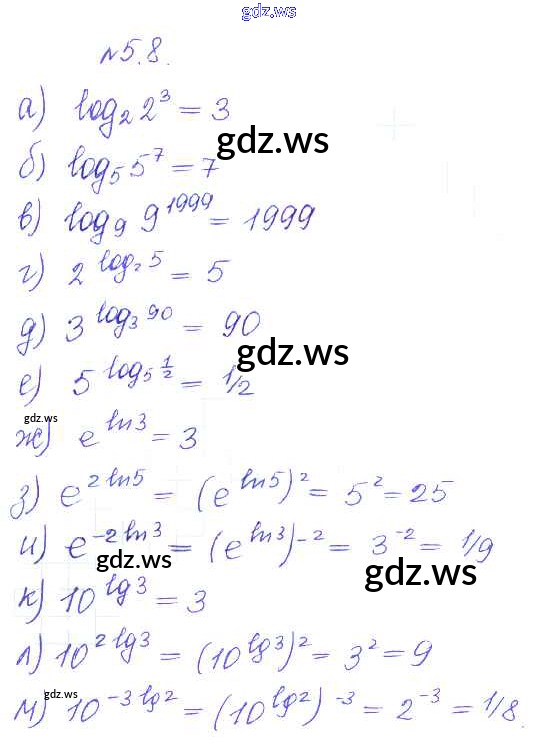 gdz.ws
№5.8.
а) log₂ 2³ = 3
gdz.ws
б) log₅ 5⁷ = 7
в) log₉ 9¹⁹⁹⁹ = 1999
г) 2^(log₂ 5) = 5
д) 3^(log₃ 90) = 90
gdz.ws
е) 5^(log₅ ½) = 1/2
gdz.ws
ж) e^(ln3) = 3
з) e^(2 ln5) = (e^(ln5))² = 5² = 25
и) e^(-2 ln3) = (e^(ln3))⁻² = 3⁻² = 1/9
gdz.ws
gdz.ws
к) 10^(lg3) = 3
л) 10^(2 lg3) = (10^(lg3))² = 3² = 9
gdz.ws
gdz.ws
м) 10^(-3 lg2) = (10^(lg2))⁻³ = 2⁻³ = 1/8.